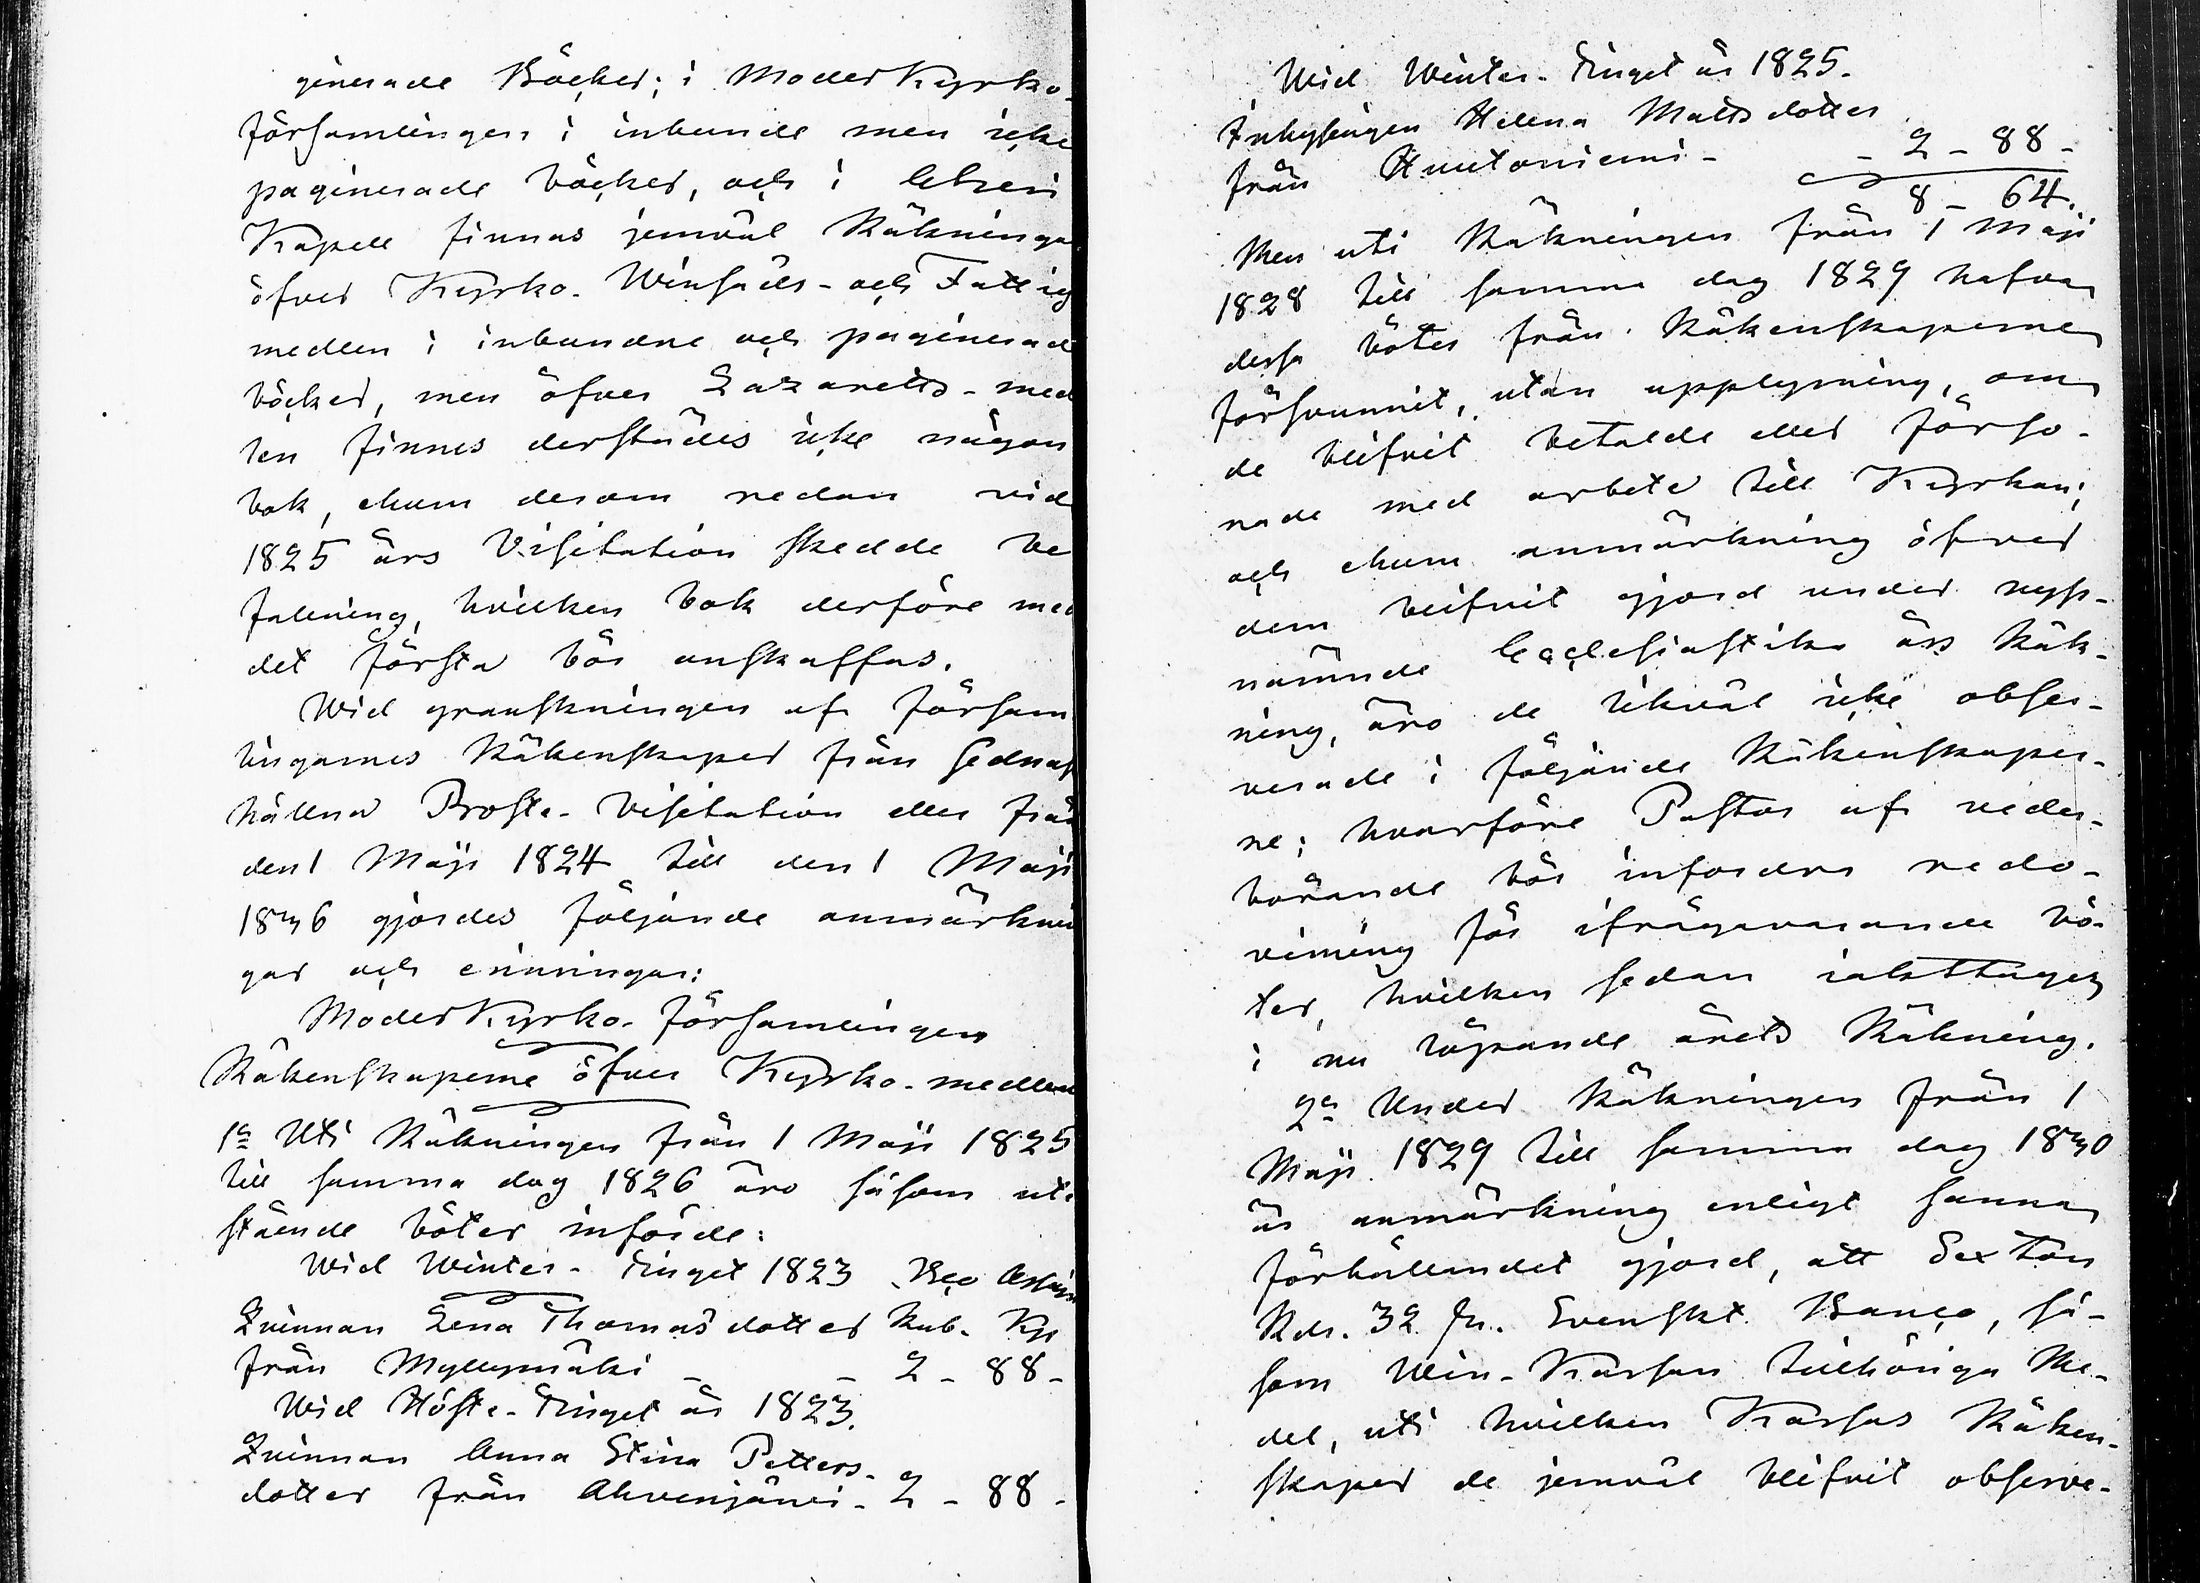 ginerade Böcker; i Moder Kyrko-
församlingen i inbunde men icke
paginerade böcker, och i
Kapell finnas jemväl Räkninga
öfver Kyrko- Winsäds- och Fattig
medlen i inbundne och paginerad
böcker, men öfver Lazaretts-med
len finnes derstädes icke någon
bok, ehuru derom redan vid
1825 års Visitation skedde be
fallning, hvilken bok derföre med
det första bör anskaffas.
Wid granskningen af Försam
lingarnes Räkenskaper från sednas
hållna Proste-Visitation eller från
den 1 Maji 1824 till den 1 Maji
1836 gjordes följande anmärknin
gar och erinringar:
Moder Kyrko-församlingen
Räkenskaperne öfver Kyrko-medlen
1o Uti Räkningen från 1 Maji 1825
till samma dag 1826 äro såsom ute
stående böter införde:
Wid Winter-Tinget 1823 Bco Assign
Qvinnan Lena Thomasdotter Rub. Kp
från Myllymäki - - 2 - 88 -
Wid Höste-Tinget år 1823.
Qvinnan Anna Stina Petters-
dotter från Ahvenjärvi - 2 - 88 -
Wid Winter-Tinget år 1825.
Inhysingen Helena Mattsdotter
från Huutoniemi - - 2 - 88 -
8 - 64.
Men uti Räkningen från 1 Maji
1828 till samma dag 1829 hafva
dessa böter från Räkenskaperne
försvunnit, utan upplysning, om
de blifvit betalde eller förso-
nade med arbete till Kyrkan;
och ehuru anmärkning öfver
dem blifvit gjord under nyss-
nämnde Ecclesiastike års Räk-
ning, äro de likväl icke obser-
verade i följande Räkenskaper-
ne; hvarföre Pastor af veder-
börande bör infordra redo-
visning för ifrågavarande bö-
ter, hvilken sedan iakttages
i nu löpande årets Räkning.
2o Under Räkningen från 1
Maji 1829 till samma dag 1830
är anmärkning enligt sanna
förhållandet gjord, att Sexton
Rdr. 32 sk. Svenskt Banco, så-
som Win-Kassan tillhöriga Me-
del, uti hvilken Kassas Räken-
skaper de jemväl blifvit observe-